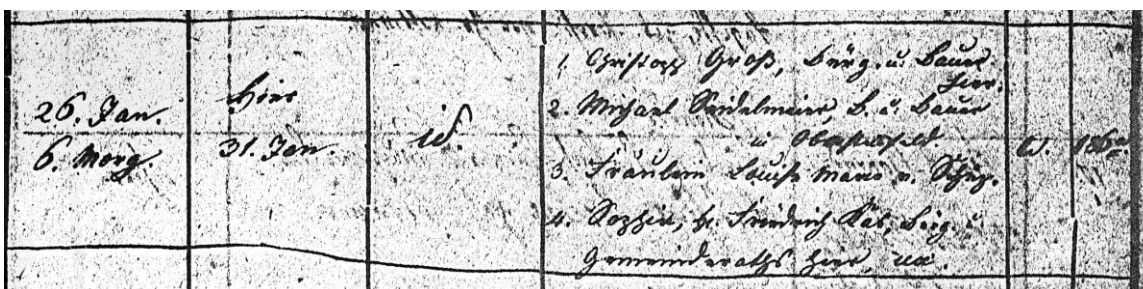 26. Jan.
6. Morg.
hier
31. Jan.
id.
1. Christoph Groß, Bürg. u. Bauer
hier.
2. Michael Seidelmeier, B. u. Bauer
in Oberstenfeld.
3. Fräulein Louise Marie v.
4. Sophie, Friedrich
Gemeinderaths hier, ux.